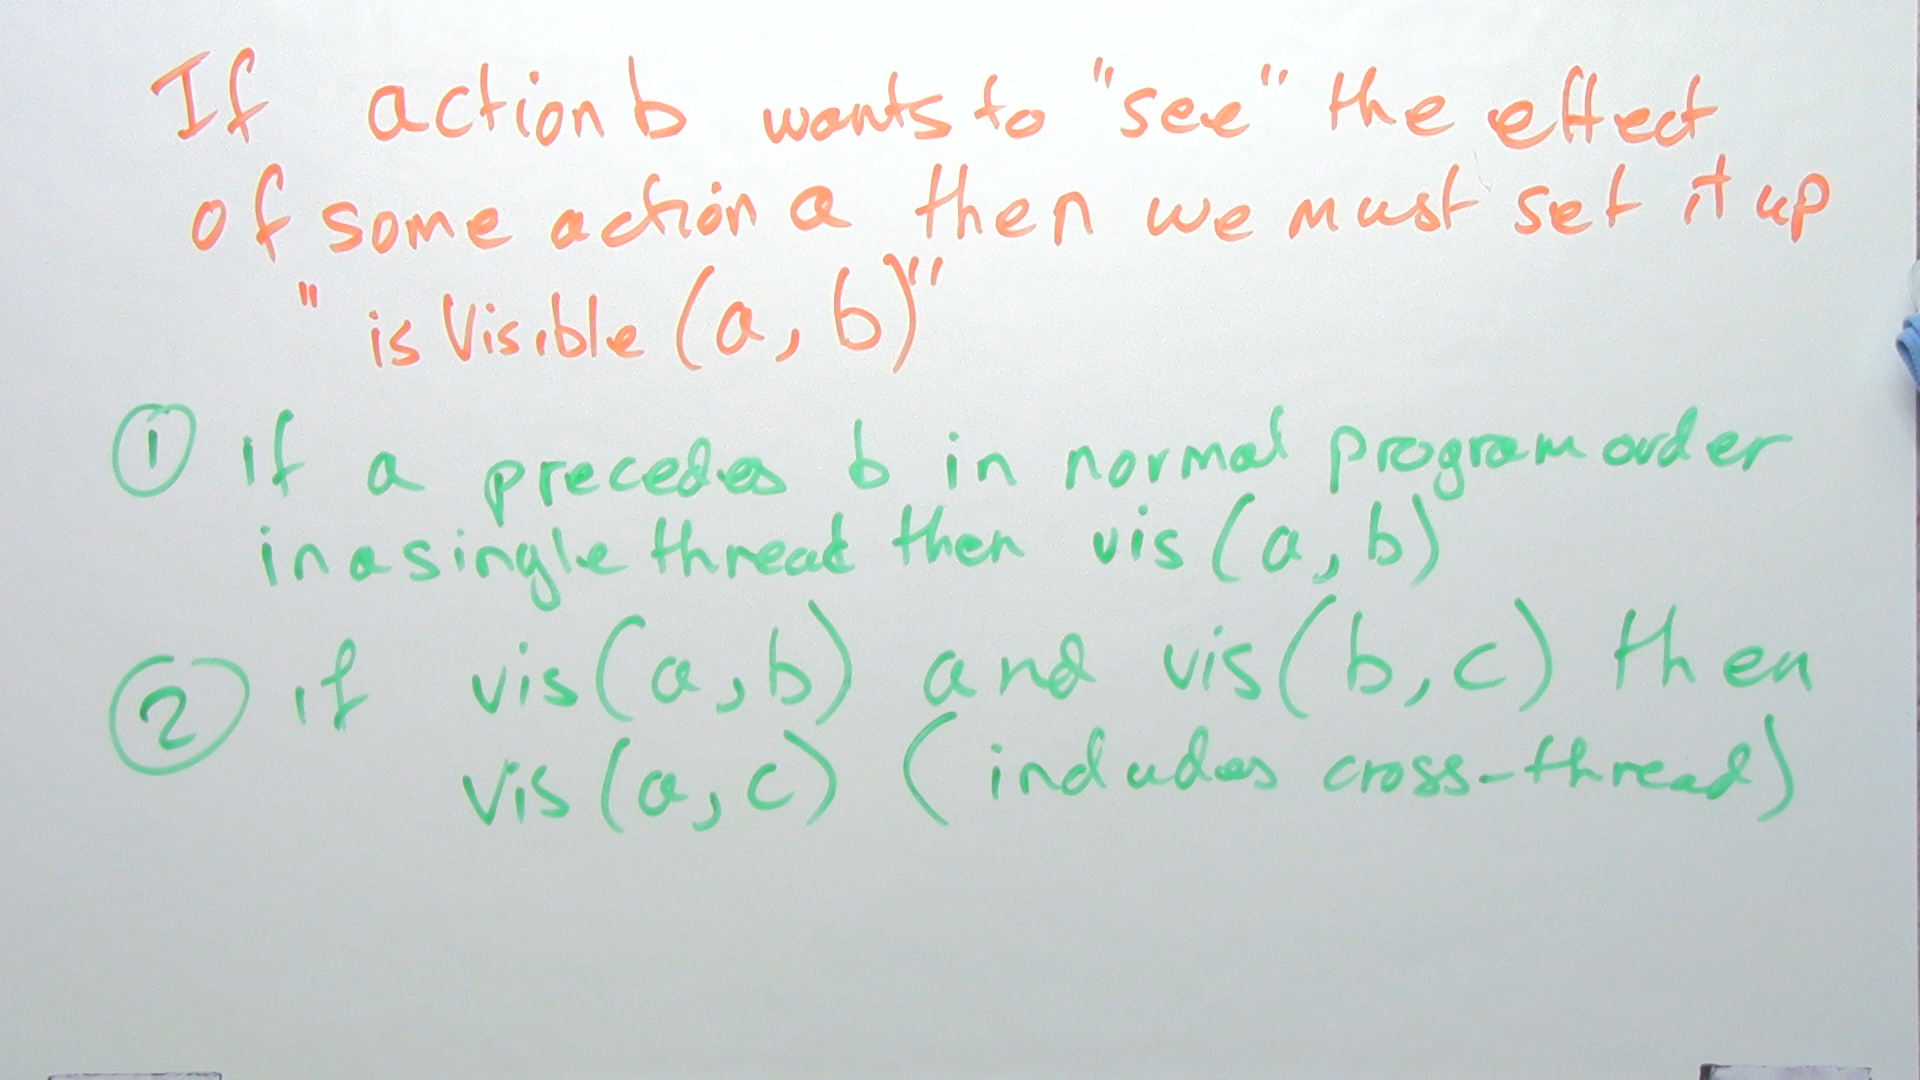 If action b wants to "see" the effect
of some action a then we must set it up
"is Visible (a, b)"
① if a precedes b in normal program order
in a single thread then vis (a, b)
② if vis (a, b) and vis (b, c) then
vis (a, c) (includes cross-thread)